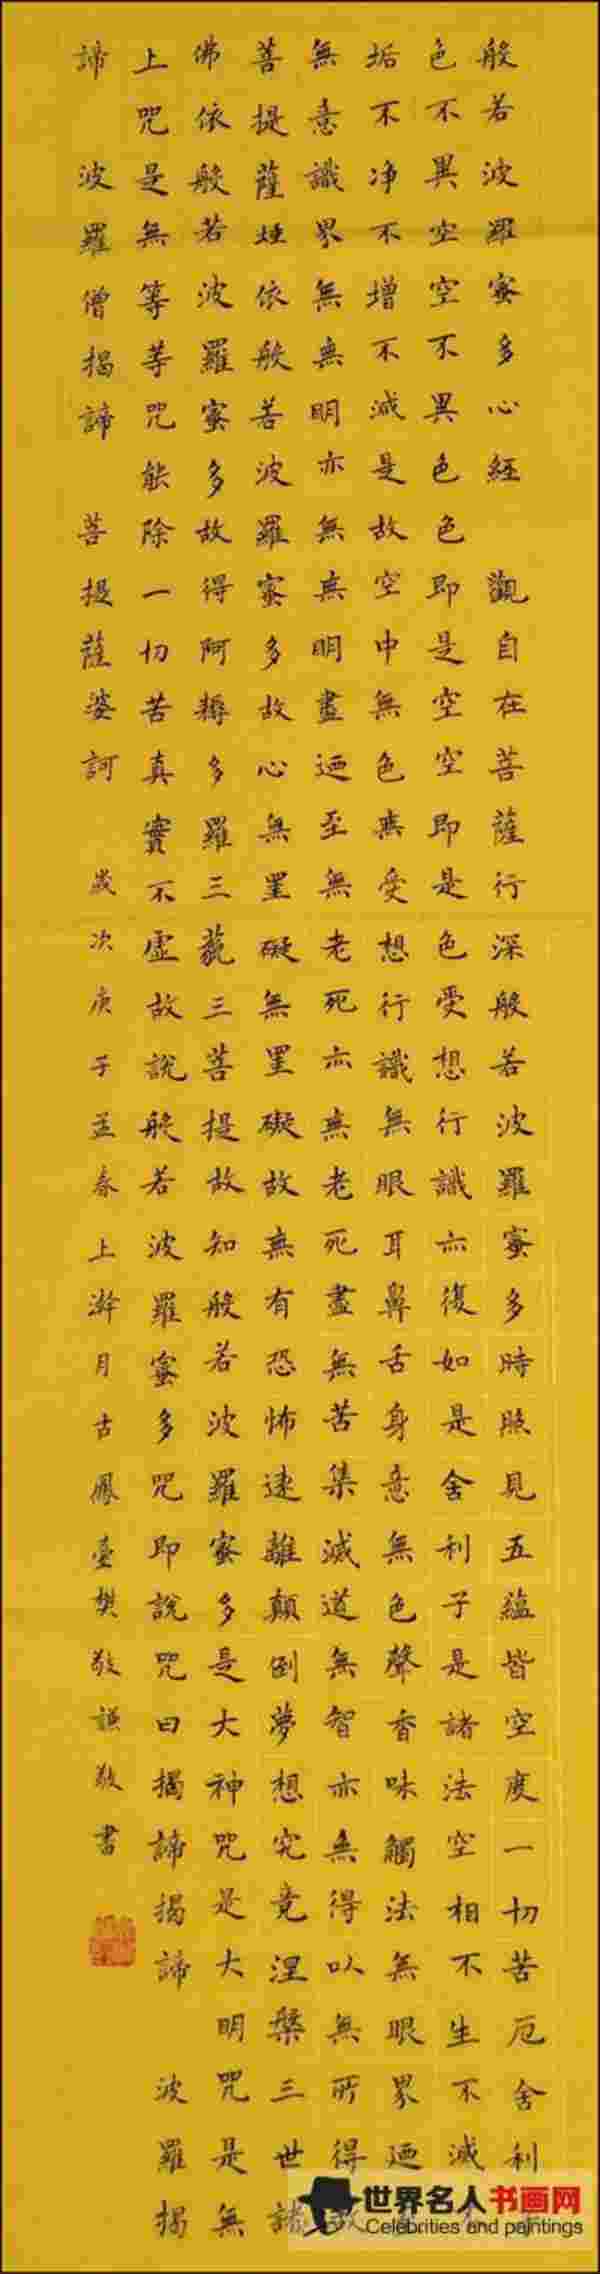 般若波羅蜜多心經 觀自在菩薩行深般若波羅蜜多時照見五蘊皆空度一切苦厄舍利
色不異空空不異色色即是空空即是色受想行識亦復如是舍利子是諸法空相不生不滅
垢不净不增不減是故空中無色無受想行識無眼耳鼻舌身意無色聲香味觸法無眼界廼
無意識界無無明亦無無明盡廼至無老死亦無老死盡無苦集滅道無智亦無得以無所得故
菩提薩埵依般若波羅蜜多故心無罣礙無罣礙故無有恐怖遠離顛倒夢想究竟涅槃三世諸
佛依般若波羅蜜多故得阿耨多羅三藐三菩提故知般若波羅蜜多是大神咒是大明咒是無
上咒是無等等咒能除一切苦真實不虛故說般若波羅蜜多咒即說咒曰揭諦揭諦 波羅揭
諦 波羅僧揭諦 菩提薩婆訶 歲次庚子孟春上澣月古鳳臺樊敬謹敬書
世界名人书画网
Celebrities and paintings